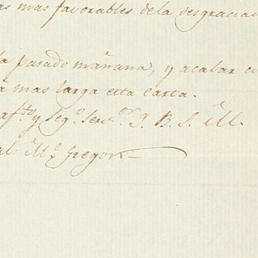 mas favorables dela desgracia
pasado mañana, y acabar
mas larga esta carta.
y Seg.º Serv.or Q. B. S. M.
M.c Gregor